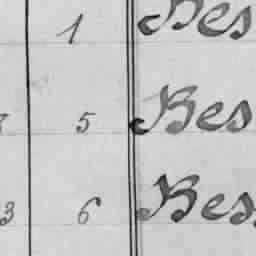 1 Bes
5 Bes
3 6 Bes